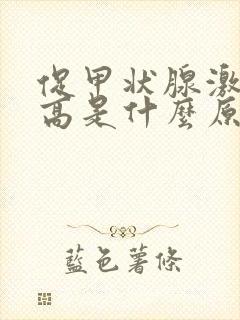 促甲状腺激
高是什麼原
藍色薯條